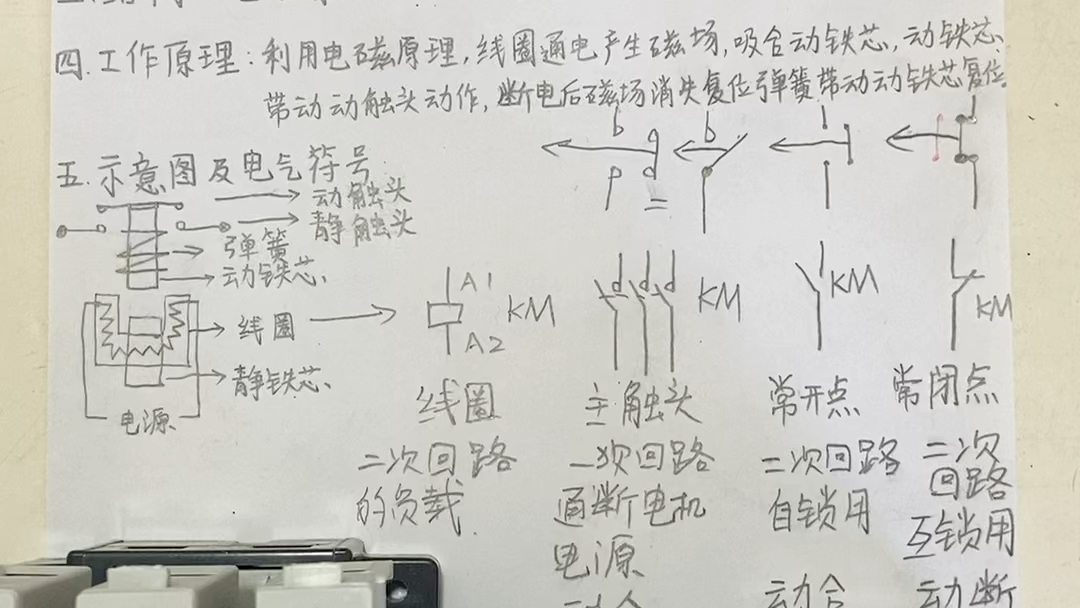 四.工作原理:利用电磁原理,线圈通电产生磁场,吸合动铁芯,动铁芯
带动动触头动作,断电后磁场消失复位弹簧带动动铁芯复位。
五.示意图及电气符号
动触头
静触头
弹簧
动铁芯
线圈
静铁芯
电源
A1
KM
A2
KM
KM
KM
线圈
主触头
常开点
常闭点
二次回路
的负载
一次回路
通断电机
电源
二次回路
自锁用
动合
二次
回路
互锁用
动断